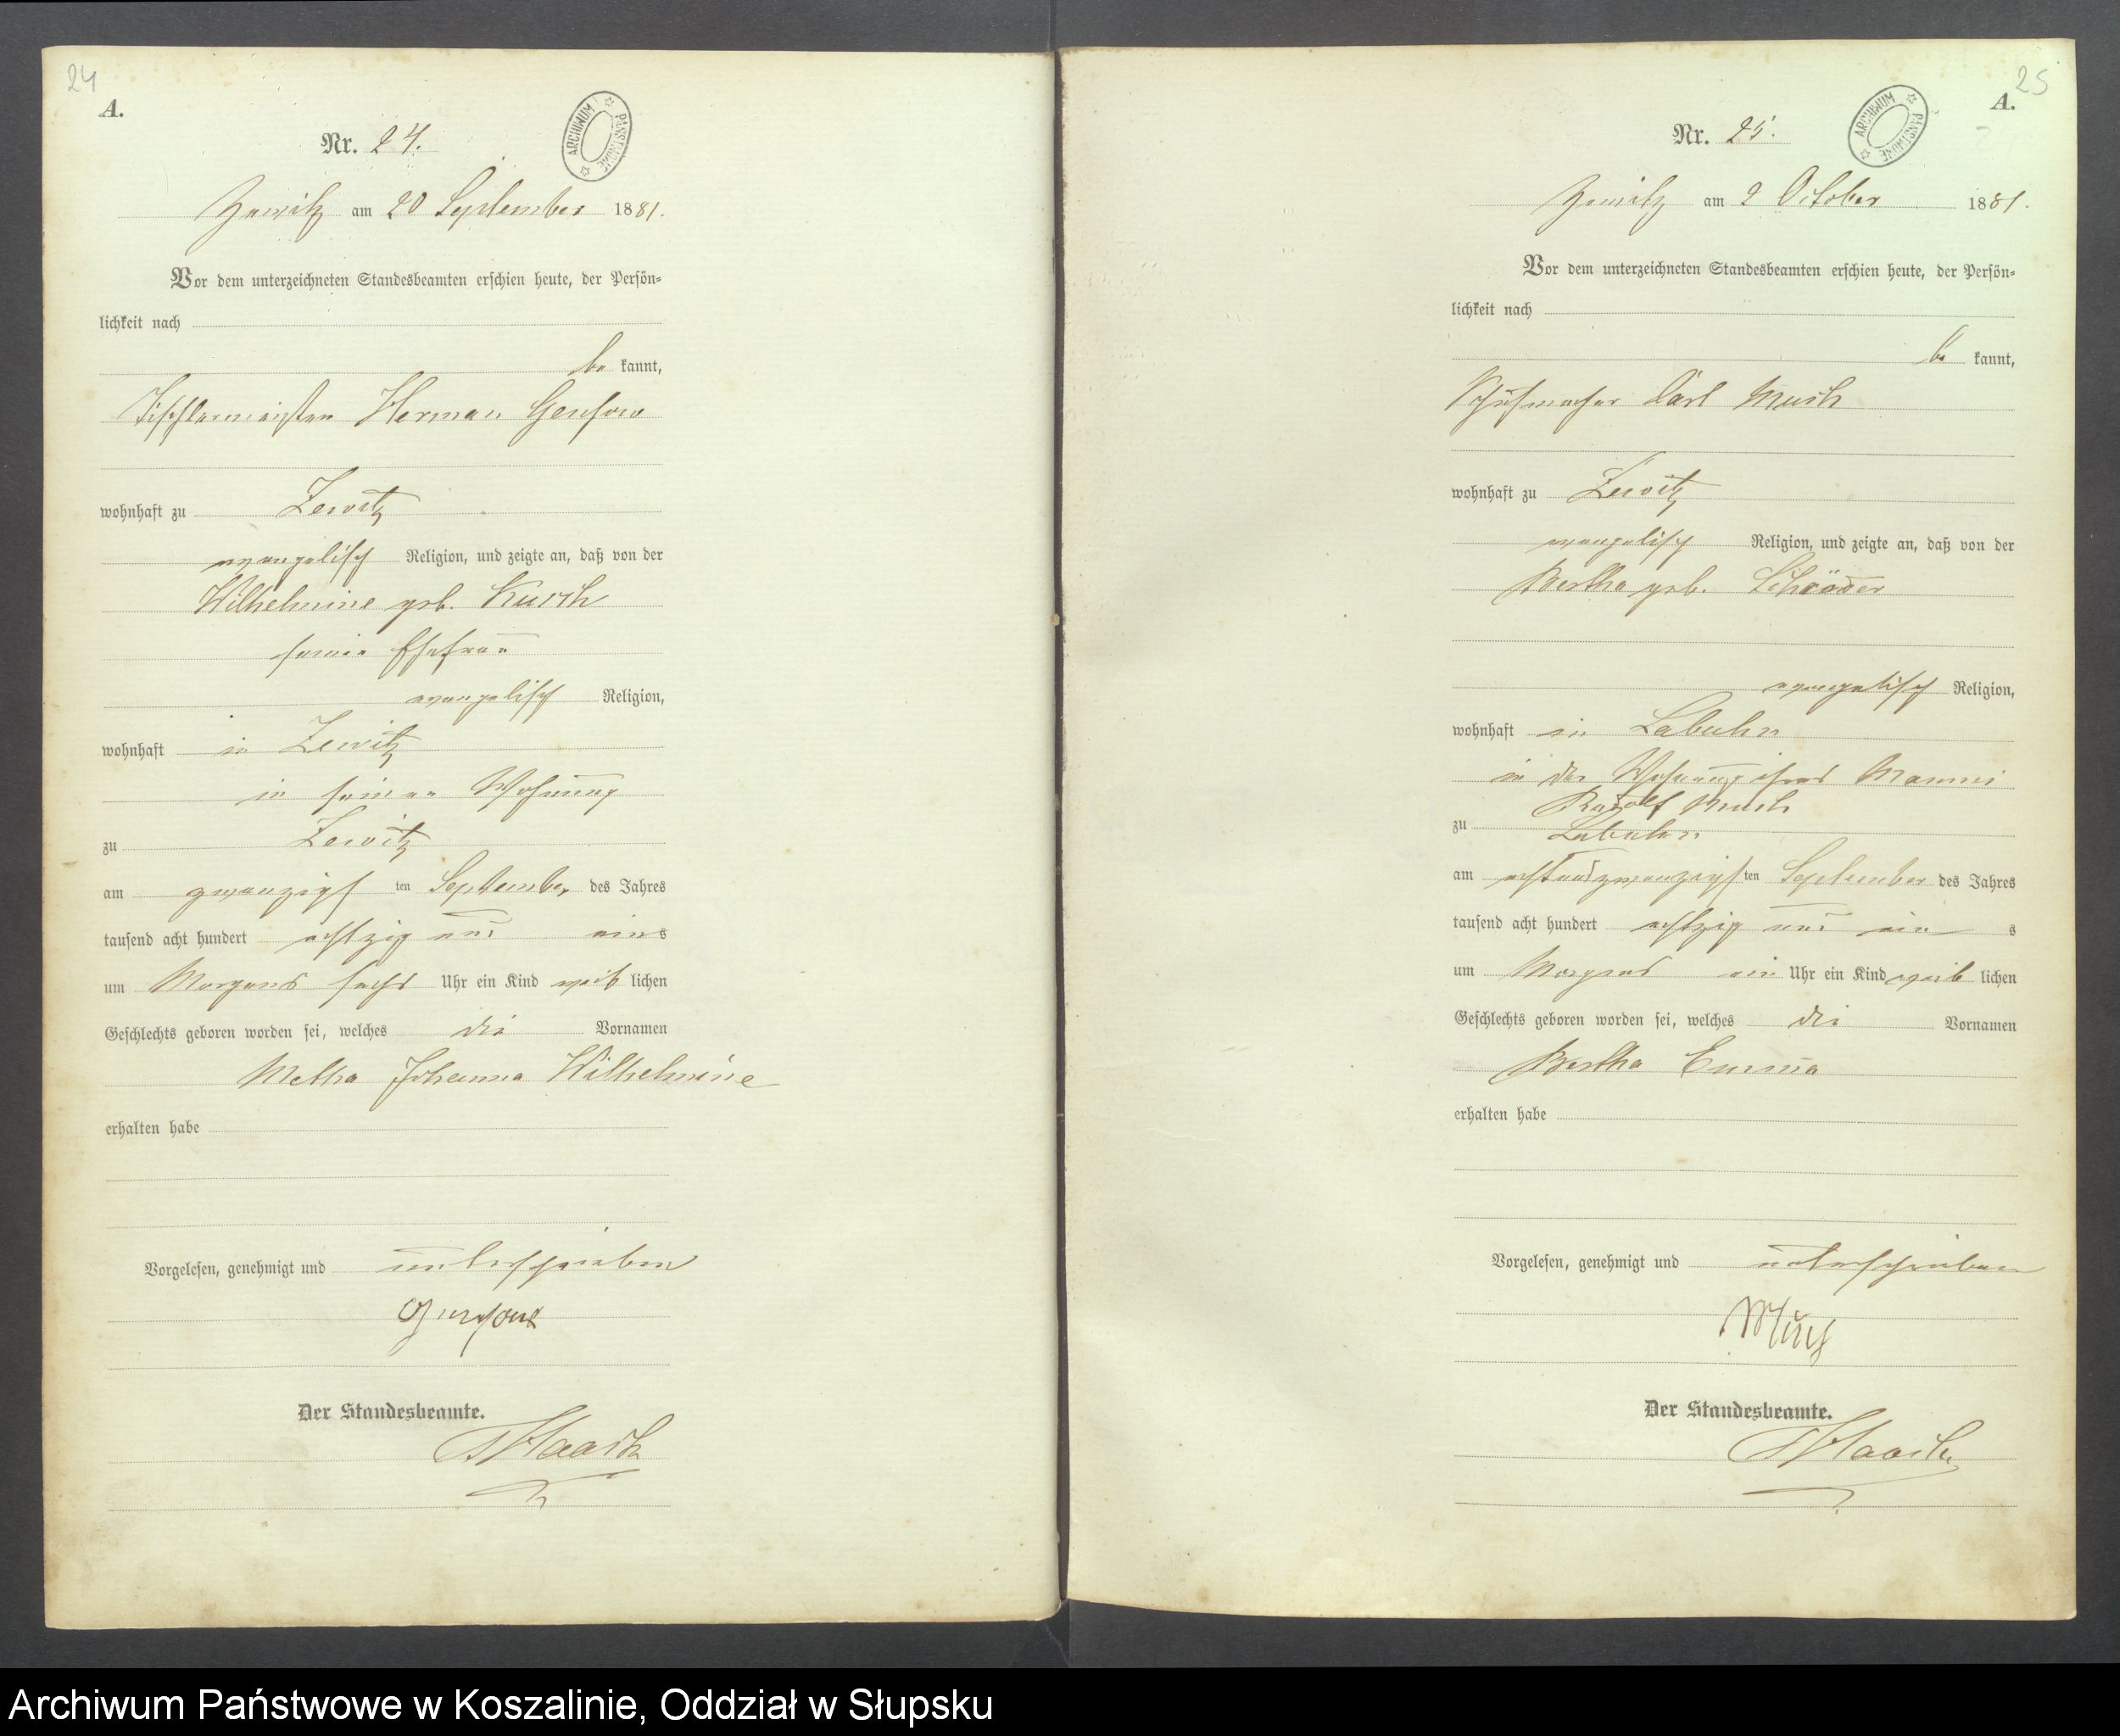 24
A.
Nr. 24.
ARCHIWUM PAŃSTWOWE
Zewitz am 20 September 1881.
Vor dem unterzeichneten Standesbeamten erschien heute, der Persön-
lichkeit nach
be kannt,
Tischlermeister Herman Genfow
wohnhaft zu Zewitz
evangelisch Religion, und zeigte an, daß von der
Wilhelmine geb.
seiner Ehefrau
evangelisch Religion,
wohnhaft in Zewitz
in seiner Wohnung
zu Zewitz
am zwanzigs ten September des Jahres
tausend acht hundert achtzig und eins
um Morgens sechs Uhr ein Kind weib lichen
Geschlechts geboren worden sei, welches die Vornamen
Metha Johanna Wilhelmine
erhalten habe
Vorgelesen, genehmigt und unterschrieben
Der Standesbeamte.
Haack
25
A.
Nr. 25.
ARCHIWUM PAŃSTWOWE
Zewitz am 2 October 1881.
Vor dem unterzeichneten Standesbeamten erschien heute, der Persön-
lichkeit nach
be kannt,
Schuhmacher Carl Much
wohnhaft zu Zewitz
evangelisch Religion, und zeigte an, daß von der
Bertha geb. Schröder
evangelisch Religion,
wohnhaft in Labuhn
in der Wohnung ihres Mannes
Rudolf Much
zu Labuhn
am achtundzwanzigs ten September des Jahres
tausend acht hundert achtzig und ein s
um Morgens ein Uhr ein Kind weib lichen
Geschlechts geboren worden sei, welches die Vornamen
Bertha Emma
erhalten habe
Vorgelesen, genehmigt und unterschrieben
Much
Der Standesbeamte.
Haack
Archiwum Państwowe w Koszalinie, Oddział w Słupsku